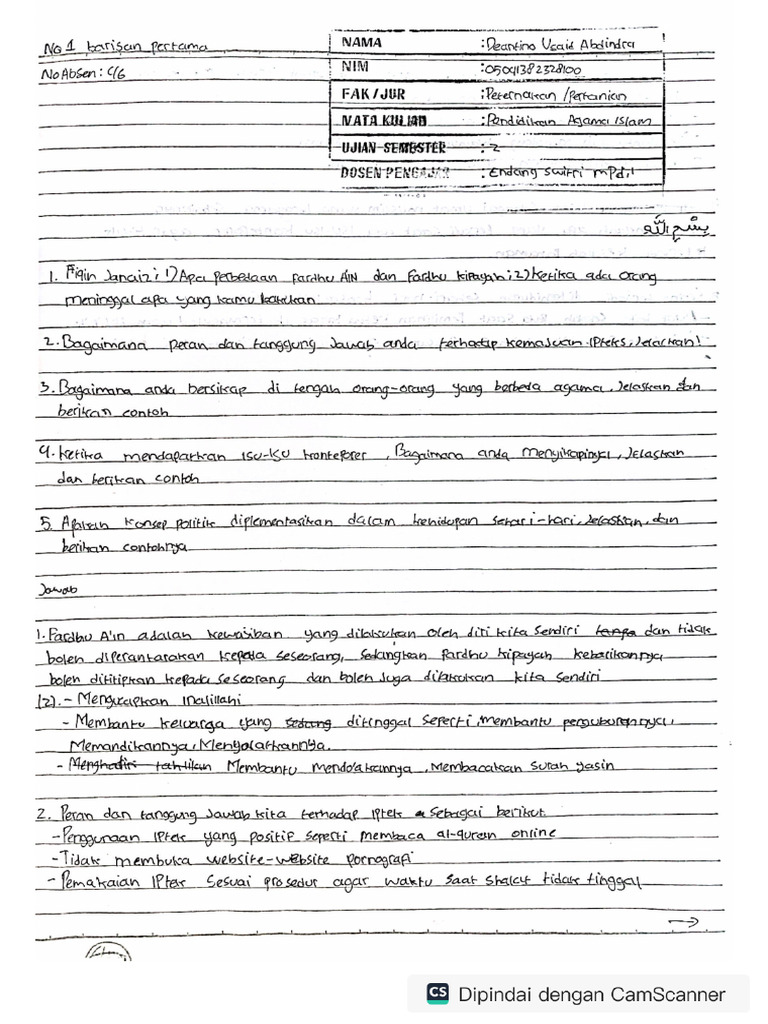 No 1 barisan pertama
No Absen : 46
NAMA : Deantino Usaid Abdindra
NIM : 05041382328100
FAK/JUR : Peternakan /pertanian
MATA KULIAH : Pendidikan Agama Islam
UJIAN SEMESTER : 2
DOSEN PENGAJAR : Endang Switri mPd,i
بسم الله
1. Fiqih Janaiz; 1) Apa perbedaan fardhu AIN dan Fardhu kifayah; 2) ketika ada orang
meninggal apa yang kamu lakukan
2. Bagaimana peran dan tanggung Jawab anda terhadap kemajuan IPteks, Jelaskan!
3. Bagaimana anda bersikap di tengah orang-orang yang berbeda agama, Jelaskan dan
berikan contoh
4. ketika mendapatkan ISU-ISU konteporer, Bagaimana anda menyikapinya, Jelaskan
dan berikan contoh
5. Apakah konsep politik diplementasikan dalam kehidupan sehari-hari, Jelaskan, dan
berikan contohnya
Jawab
1. Fardhu A'in adalah kewajiban yang dilakukan oleh diri kita sendiri tanpa dan tidak
boleh diperantarakan kepada seseorang, sedangkan Fardhu kipayah kebalikannya
boleh dititipkan kepada seseorang dan boleh Juga dilakukan kita sendiri
(2). - Mengucapkan Inalillahi
- Membantu keluarga yang sedang ditinggal seperti, membantu penguburannya,
Memandikannya, Menyolatkannya.
- Menghadiri tahlilan Membantu mendo'akannya, Membacakan surah yasin
2. Peran dan tanggung Jawab kita terhadap Iptek sebagai berikut
- Penggunaan Iptek yang positip seperti membaca al-quran online
- Tidak membuka website-website pornografi
- Pemakaian IPtek sesuai prosedur agar waktu saat shalat tidak tinggal
→
CS Dipindai dengan CamScanner